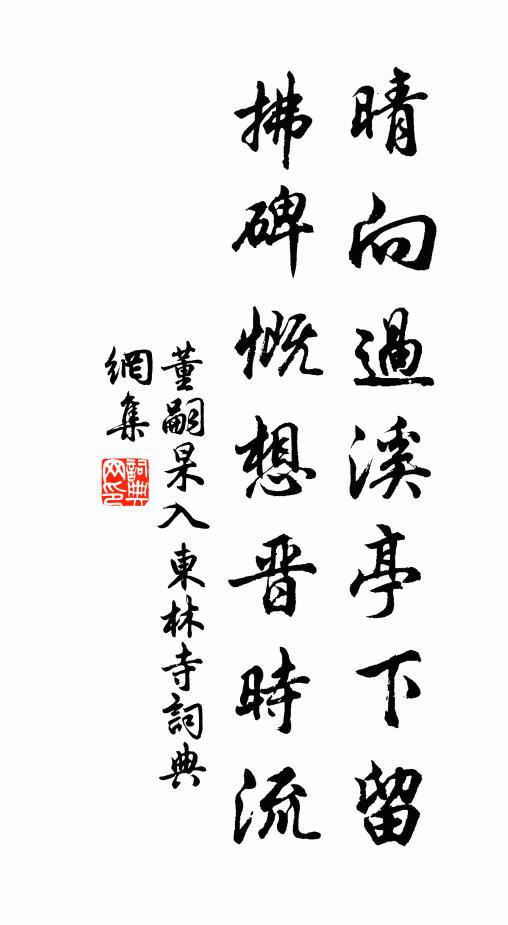 晴向過溪亭下留
拂碑慨想晉時流
董嗣杲入東林寺詞典
網集
詞典
网印